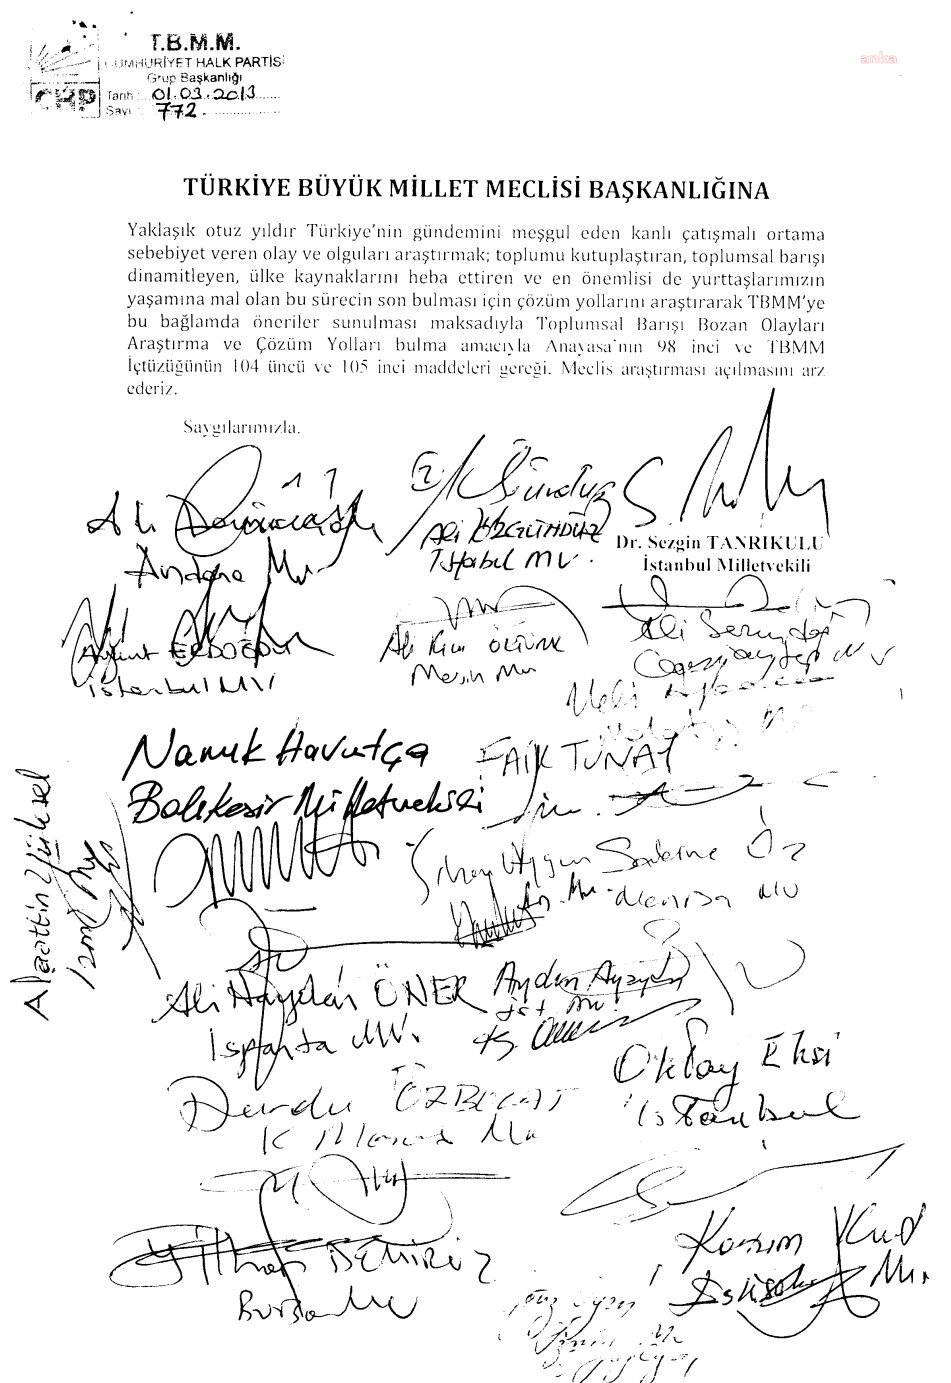 T.B.M.M.
CUMHURİYET HALK PARTİSİ
Grup Başkanlığı
CHP
Tarih : 01.03.2013
Sayı : 772.
anka
TÜRKİYE BÜYÜK MİLLET MECLİSİ BAŞKANLIĞINA
Yaklaşık otuz yıldır Türkiye'nin gündemini meşgul eden kanlı çatışmalı ortama
sebebiyet veren olay ve olguları araştırmak; toplumu kutuplaştıran, toplumsal barışı
dinamitleyen, ülke kaynaklarını heba ettiren ve en önemlisi de yurttaşlarımızın
yaşamına mal olan bu sürecin son bulması için çözüm yollarını araştırarak TBMM'ye
bu bağlamda öneriler sunulması maksadıyla Toplumsal Barışı Bozan Olayları
Araştırma ve Çözüm Yolları bulma amacıyla Anayasa'nın 98 inci ve TBMM
İçtüzüğünün 104 üncü ve 105 inci maddeleri gereği. Meclis araştırması açılmasını arz
ederiz.
Saygılarımızla.
Ali
Mv
Ali
İstanbul MV.
Dr. Sezgin TANRIKULU
İstanbul Milletvekili
Aykut ERDOĞDU
İstanbul MV
Ali Rıza ÖZTÜRK
Mersin Mv
Ali Serindağ
Gaziantep MV
Namık Havutça
Balıkesir Milletvekili
FAİK TUNAY
Alaattin Yüksel
İzmir Mv
Sakine Öz
Manisa MV
Ali Haydar ÖNER
Isparta MV.
Aydın Ayaydın
İst Mv.
Oktay Ekşi
İstanbul
Durdu ÖZBOLAT
K Maraş Mv
İlhan DEMİRÖZ
Bursa MV
Kazım Kurt
Eskişehir Mv.